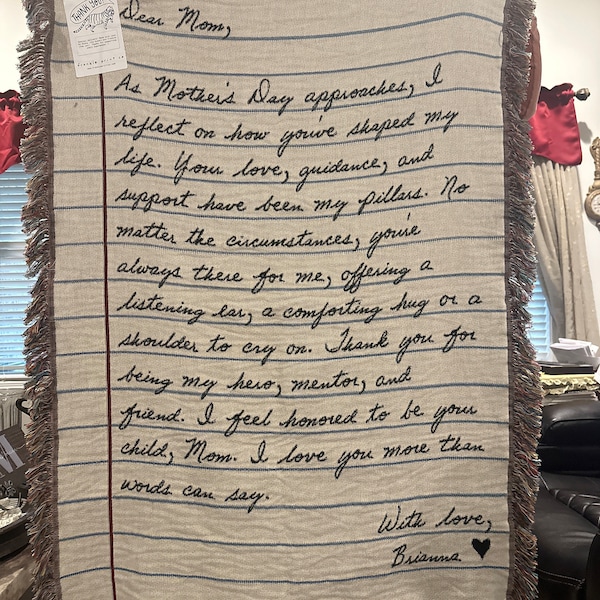 THANK YOU
Dear Mom,
As Mother's Day approaches, I
reflect on how you've shaped my
life. Your love, guidance, and
support have been my pillars. No
matter the circumstances, you're
always there for me, offering a
listening ear, a comforting hug or a
shoulder to cry on. Thank you for
being my hero, mentor, and
friend. I feel honored to be your
child, Mom. I love you more than
words can say.
With love,
Brianna